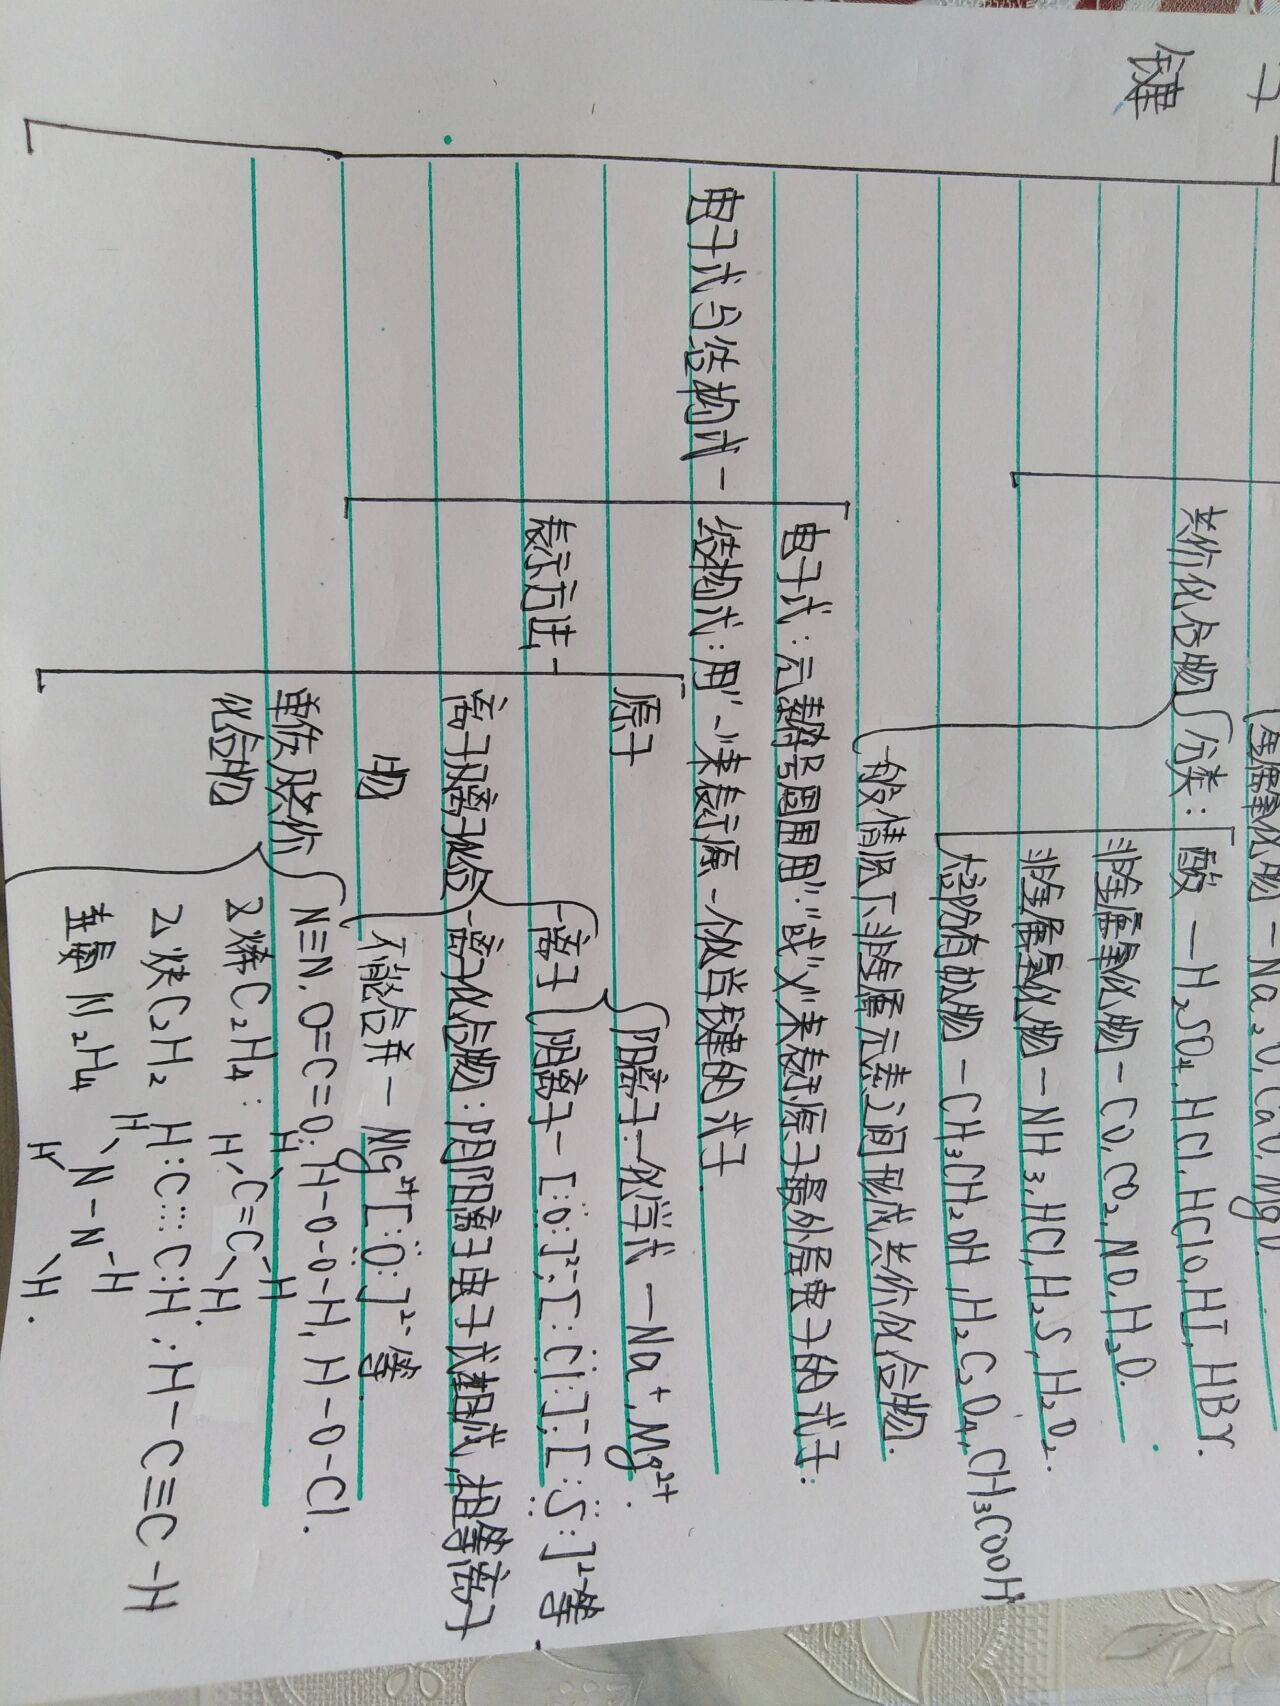 键
金属氧化物-Na₂O,CaO,MgO.
共价化合物
分类:
酸—H₂SO₄,HCl,HClO,HI,HBr.
非金属氧化物-CO,CO₂,NO,H₂O.
非金属氢化物-NH₃,HCl,H₂S,H₂O₂.
大部分有机物-CH₃CH₂OH,H₂C₂O₄,CH₃COOH
一般情况下非金属元素之间形成共价化合物.
电子式与结构式-
电子式:元素符号周围用"·"或"×"来表示原子最外层电子的式子:
结构式:用"-"来表示原-价键的式子.
表示方法-
原子
阳离子-化学式—Na⁺,Mg²⁺.
离子
阴离子-[:Ö:]²⁻,[:Cl:]⁻,[:S:]²⁻等.
离子及离子化合
物
离子化合物:阴阳离子电子式组成,相等离子
不能合并-Mg²⁺[:Ö:]²⁻等
单质及共价
化合物
N≡N,O=C=O,H-O-O-H,H-O-Cl.
乙烯C₂H₄:
H H
C=C
H H.
乙炔C₂H₂ H:C⋮⋮C:H,H—C≡C-H
N₂H₄
H H
N-N
H H.